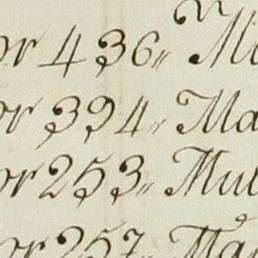 or 436„ M
or 394„ Ma
or 253„ Mul
or 257„ Ma